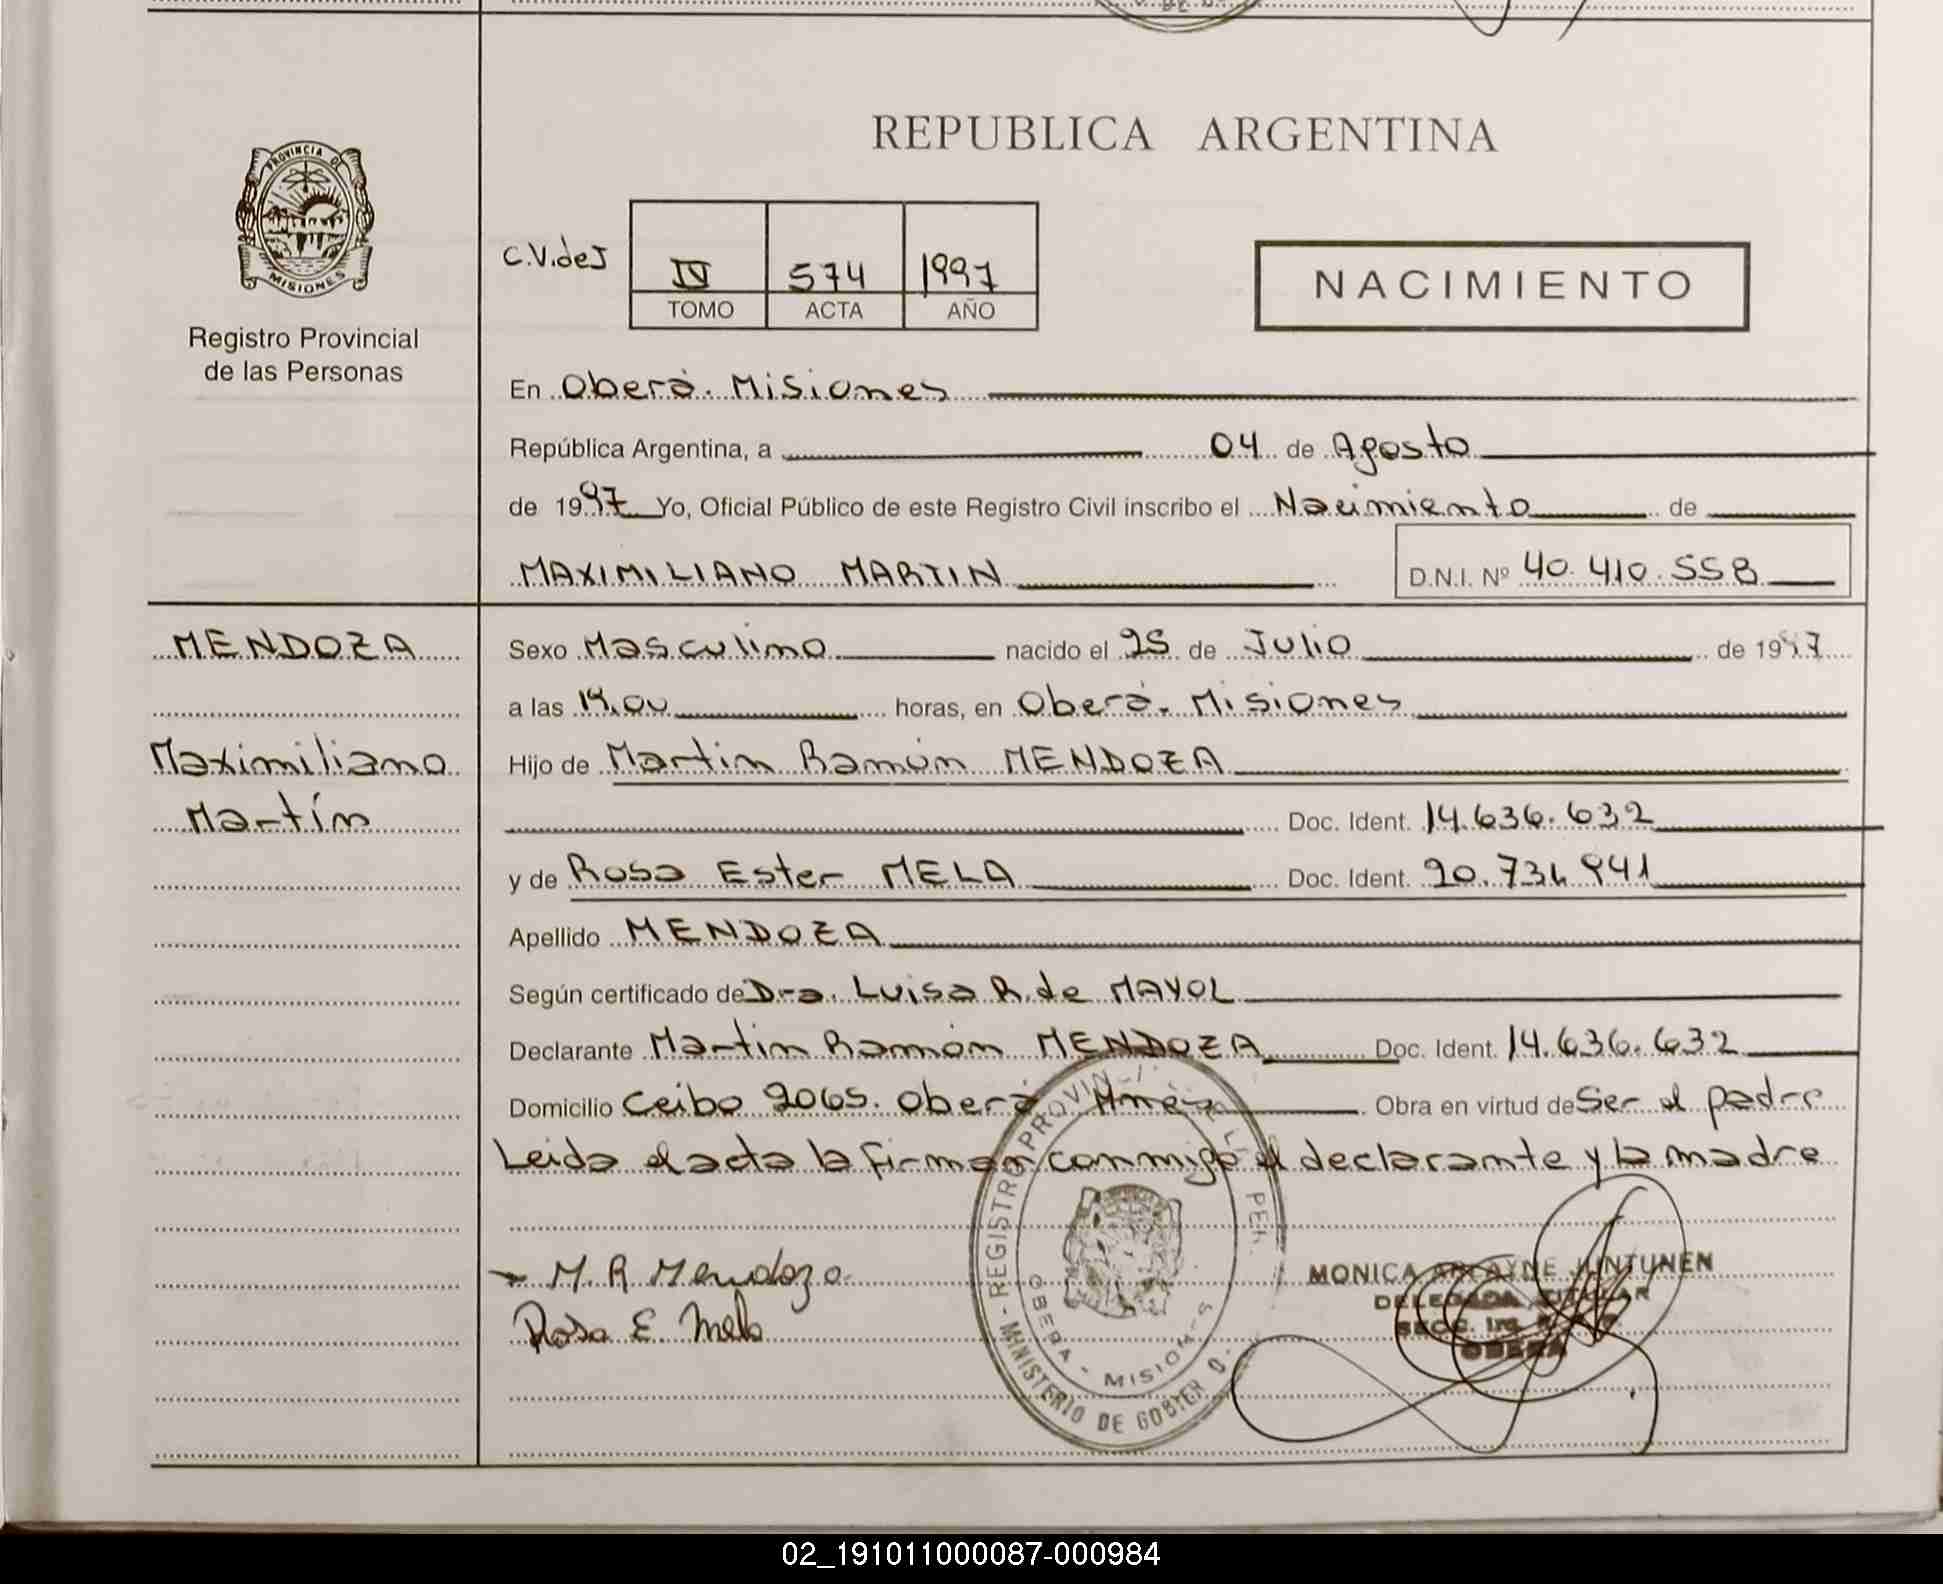 REPUBLICA ARGENTINA
PROVINCIA DE
MISIONES
Registro Provincial
de las Personas
C.V.deJ
IV 574 1997
TOMO ACTA AÑO
NACIMIENTO
En Oberá. Misiones
República Argentina, a 04 de Agosto
de 1997 Yo, Oficial Público de este Registro Civil inscribo el Nacimiento de
MAXIMILIANO MARTIN D.N.I. Nº 40.410.558
MENDOZA
Maximiliano
Martín
Sexo Masculino nacido el 25 de Julio de 1997
a las horas, en Oberá. Misiones
Hijo de Martin Ramón MENDOZA
Doc. Ident. 14.636.632
y de Rosa Ester MELA Doc. Ident.
Apellido MENDOZA
Según certificado de Dra. Luisa R. de MAYOL
Declarante Martin Ramón MENDOZA Doc. Ident. 14.636.632
Domicilio Ceibo 2065. Oberá Mnes Obra en virtud de Ser el padre
Leida el acta la firman conmigo el declarante y la madre
M. R Mendoza
Rosa E. Mela
REGISTRO PROVIN
OBERA - MISIONES
MINISTERIO DE GOBIER
MONICA JUNTUNEN
DELEGADA TITULAR
OBERA
02_191011000087-000984